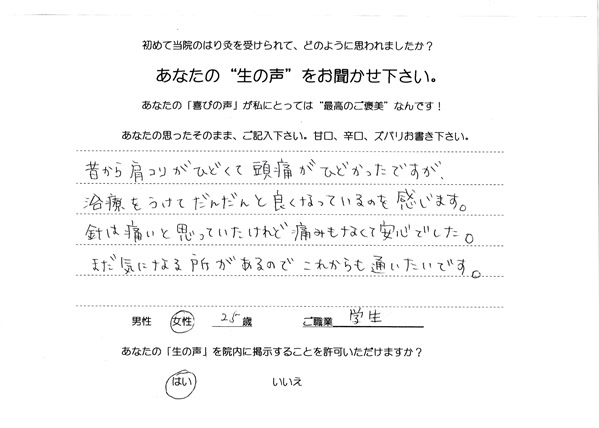 初めて当院のはり灸を受けられて、どのように思われましたか？
あなたの“生の声”をお聞かせ下さい。
あなたの「喜びの声」が私にとっては“最高のご褒美”なんです！
あなたの思ったそのまま、ご記入下さい。甘口、辛口、ズバリお書き下さい。
昔から肩コリがひどくて頭痛がひどかったですが、
治療をうけてだんだんと良くなっているのを感じます。
針は痛いと思っていたけれど痛みもなくて安心でした。
まだ気になる所があるのでこれからも通いたいです。
男性 女性 25歳 ご職業 学生
あなたの「生の声」を院内に掲示することを許可いただけますか？
はい いいえ